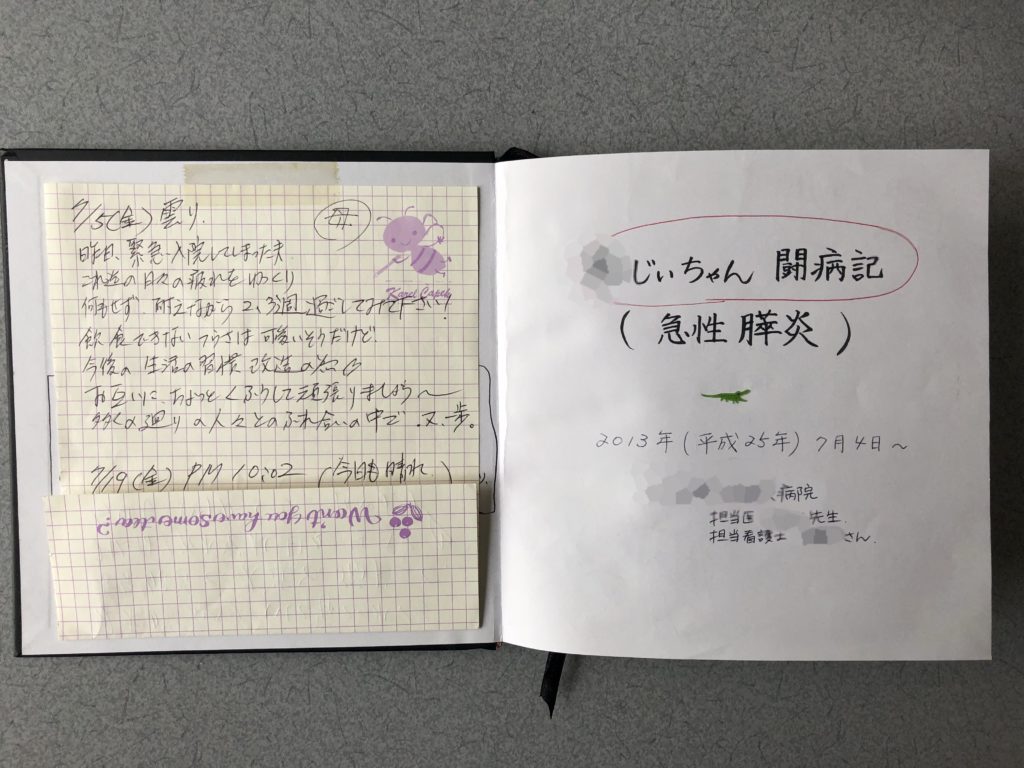 7/5(金) 雲り.
母
昨日、緊急入院してしまった夫
これ迄の日々の疲れをゆっくり
何もせず、耐えながら2、3週過だしてみて下さい!
飲食できないつらさは可愛いそうだけど
今後の生活の習慣改造の為の
お互いに、ちょっとくふうして頑張りましょう〜
多くの廻りの人々とのふれ合いの中で.又、歩。
7/19(金) PM 10:02 (今日も晴れ)
Karel Capek
Won't you have some tea?
じいちゃん 闘病記
(急性膵炎)
2013年(平成25年) 7月4日〜
病院
担当医 先生.
担当看護士 さん.